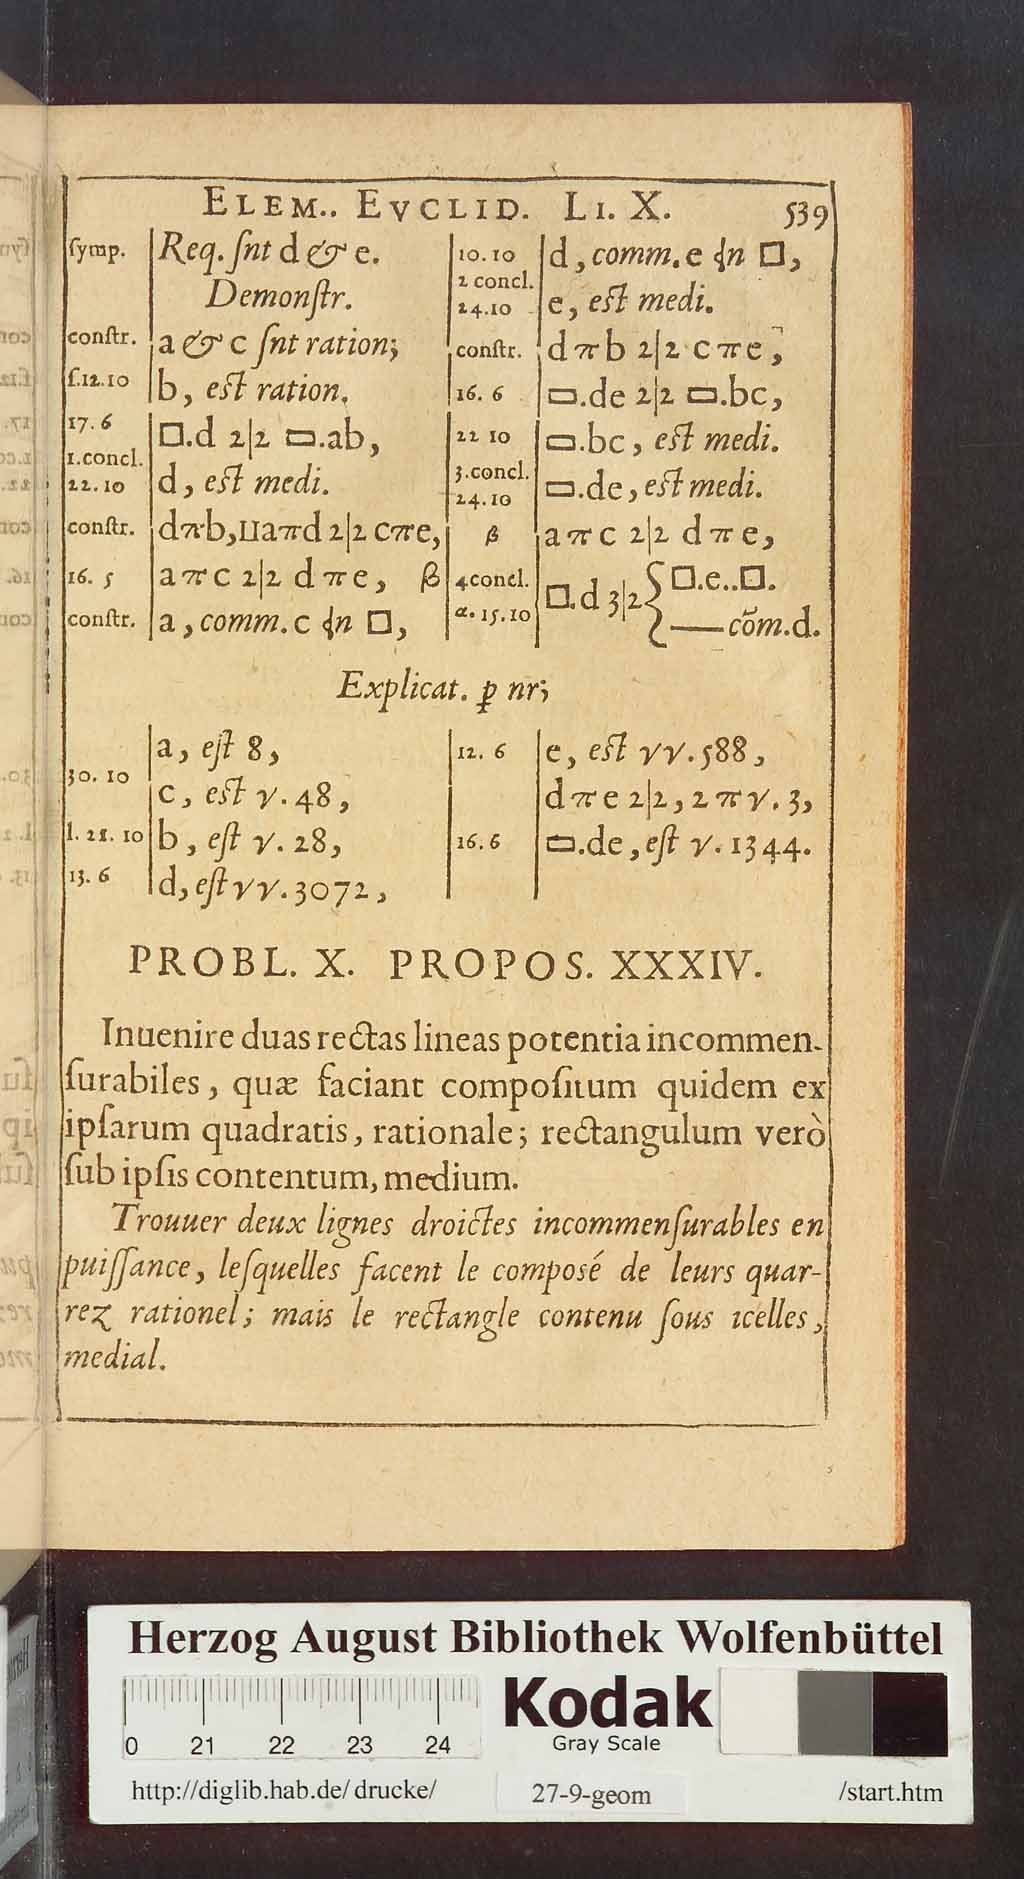 ELEM.. EVCLID. LI. X. 539
symp. Req. ſnt d & e.
Demonſtr.
conſtr. a & c ſnt ration;
ſ.12.10 b, eſt ration.
17. 6 □.d 2|2 ▭.ab,
1.concl.
22.10 d, eſt medi.
conſtr. dπb, IIaπd 2|2 cπe,
16. 5 aπc 2|2 dπe, β
conſtr. a, comm. c ⨍n □,
10.10 d, comm. e ⨍n □,
2 concl.
24.10 e, eſt medi.
conſtr. dπb 2|2 cπe,
16. 6 ▭.de 2|2 ▭.bc,
22 10 ▭.bc, eſt medi.
3.concl.
24.10 ▭.de, eſt medi.
β aπc 2|2 dπe,
4concl. □.d 3|2 { □.e..□.
α. 15.10 — cõm.d.
Explicat. ꝑ nr;
a, eſt 8,
30. 10
c, eſt γ. 48,
l. 28. 10 b, eſt γ. 28,
13. 6 d, eſt γγ. 3072,
12. 6 e, eſt γγ. 588,
dπe 2|2, 2πγ. 3,
16. 6 ▭.de, eſt γ. 1344.
PROBL. X. PROPOS. XXXIV.
Inuenire duas rectas lineas potentia incommen-
ſurabiles, quæ faciant compoſitum quidem ex
ipſarum quadratis, rationale; rectangulum verò
ſub ipſis contentum, medium.
Trouuer deux lignes droictes incommenſurables en
puiſſance, leſquelles facent le composé de leurs quar-
rez rationel; mais le rectangle contenu ſous icelles,
medial.
Herzog August Bibliothek Wolfenbüttel
0 21 22 23 24
Kodak
Gray Scale
http://diglib.hab.de/ drucke/ 27-9-geom /start.htm